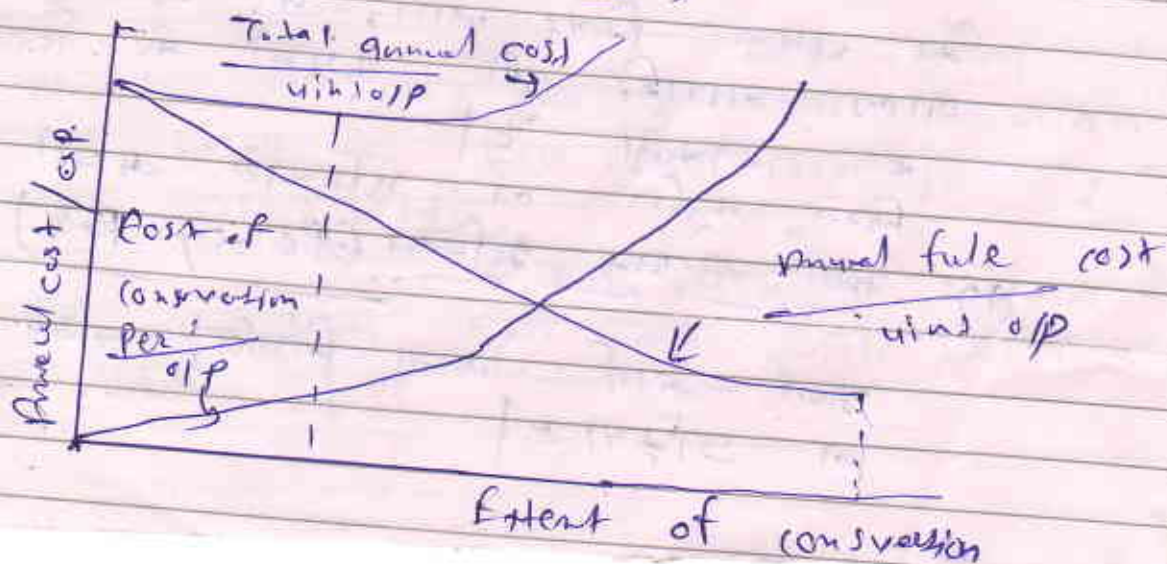 Total annual cost
uint o/p
Annual cost / op.
Cost of
consvertion
per
o/p
Annual fule cost
uint o/p
Extent of consvertion